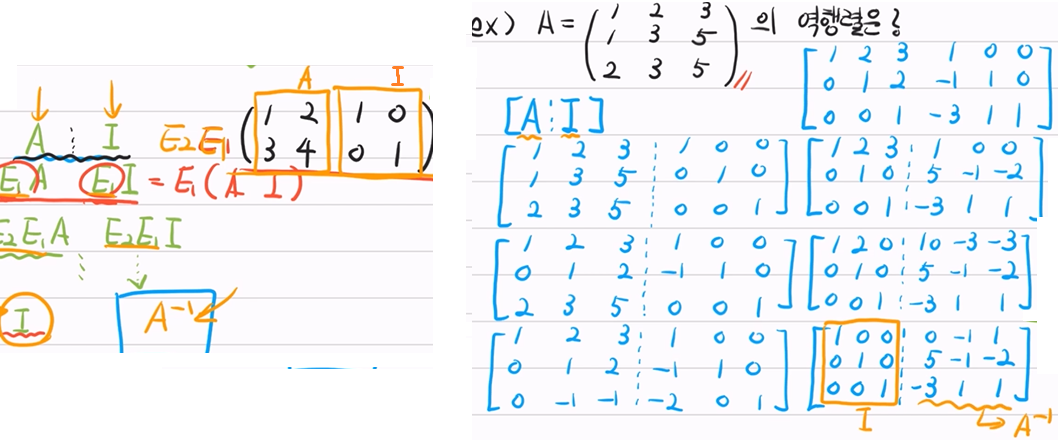 A I
A I E₂E₁ ( 1 2 1 0
3 4 0 1 )
E₁A E₁I = E₁(A I)
E₂E₁A E₂E₁I
I A⁻¹
ex) A = ( 1 2 3
1 3 5
2 3 5 ) 의 역행렬은?
[A ⋮ I]
[ 1 2 3 ⋮ 1 0 0
1 3 5 ⋮ 0 1 0
2 3 5 ⋮ 0 0 1 ]
[ 1 2 3 ⋮ 1 0 0
0 1 2 ⋮ -1 1 0
2 3 5 ⋮ 0 0 1 ]
[ 1 2 3 ⋮ 1 0 0
0 1 2 ⋮ -1 1 0
0 -1 -1 ⋮ -2 0 1 ]
[ 1 2 3 1 0 0
0 1 2 -1 1 0
0 0 1 -3 1 1 ]
[ 1 2 3 ⋮ 1 0 0
0 1 0 ⋮ 5 -1 -2
0 0 1 ⋮ -3 1 1 ]
[ 1 2 0 ⋮ 10 -3 -3
0 1 0 ⋮ 5 -1 -2
0 0 1 ⋮ -3 1 1 ]
[ 1 0 0 ⋮ 0 -1 1
0 1 0 ⋮ 5 -1 -2
0 0 1 ⋮ -3 1 1 ]
I → A⁻¹